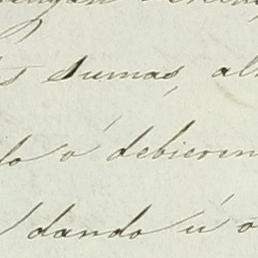 s sumas, al
lo ó debieron
dando ú o